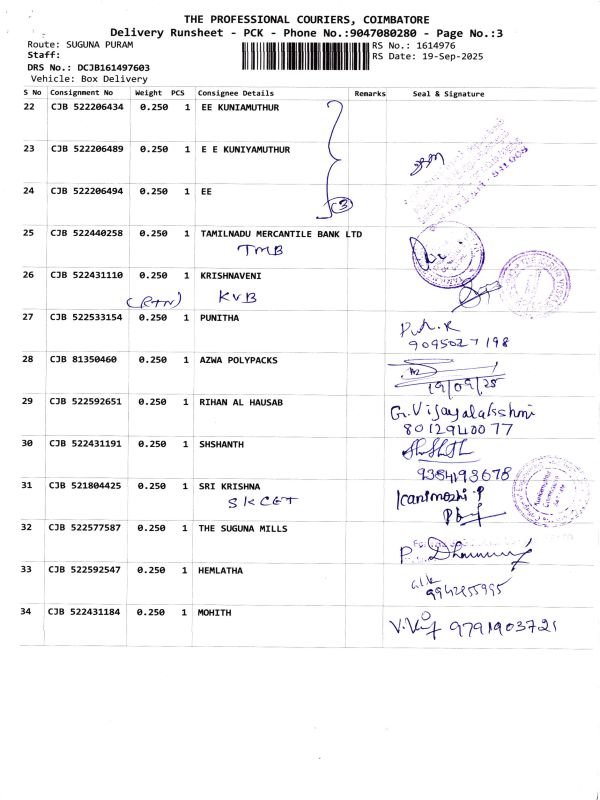 THE PROFESSIONAL COURIERS, COIMBATORE
Delivery Runsheet - PCK - Phone No.:9047080280 - Page No.:3
Route: SUGUNA PURAM
RS No.: 1614976
Staff:
RS Date: 19-Sep-2025
DRS No.: DCJB161497603
Vehicle: Box Delivery
S No Consignment No Weight PCS Consignee Details Remarks Seal & Signature
22 CJB 522206434 0.250 1 EE KUNIAMUTHUR
23 CJB 522206489 0.250 1 E E KUNIYAMUTHUR
24 CJB 522206494 0.250 1 EE
25 CJB 522440258 0.250 1 TAMILNADU MERCANTILE BANK LTD
TMB
26 CJB 522431110 0.250 1 KRISHNAVENI
(RTN) KVB
27 CJB 522533154 0.250 1 PUNITHA
9095027198
28 CJB 81350460 0.250 1 AZWA POLYPACKS
19/09/25
29 CJB 522592651 0.250 1 RIHAN AL HAUSAB
G. Vijayalakshmi
8012940077
30 CJB 522431191 0.250 1 SHSHANTH
9384193678
31 CJB 521804425 0.250 1 SRI KRISHNA
SKCET
Kanimozhi P
32 CJB 522577587 0.250 1 THE SUGUNA MILLS
33 CJB 522592547 0.250 1 HEMLATHA
9942855995
34 CJB 522431184 0.250 1 MOHITH
9791903721